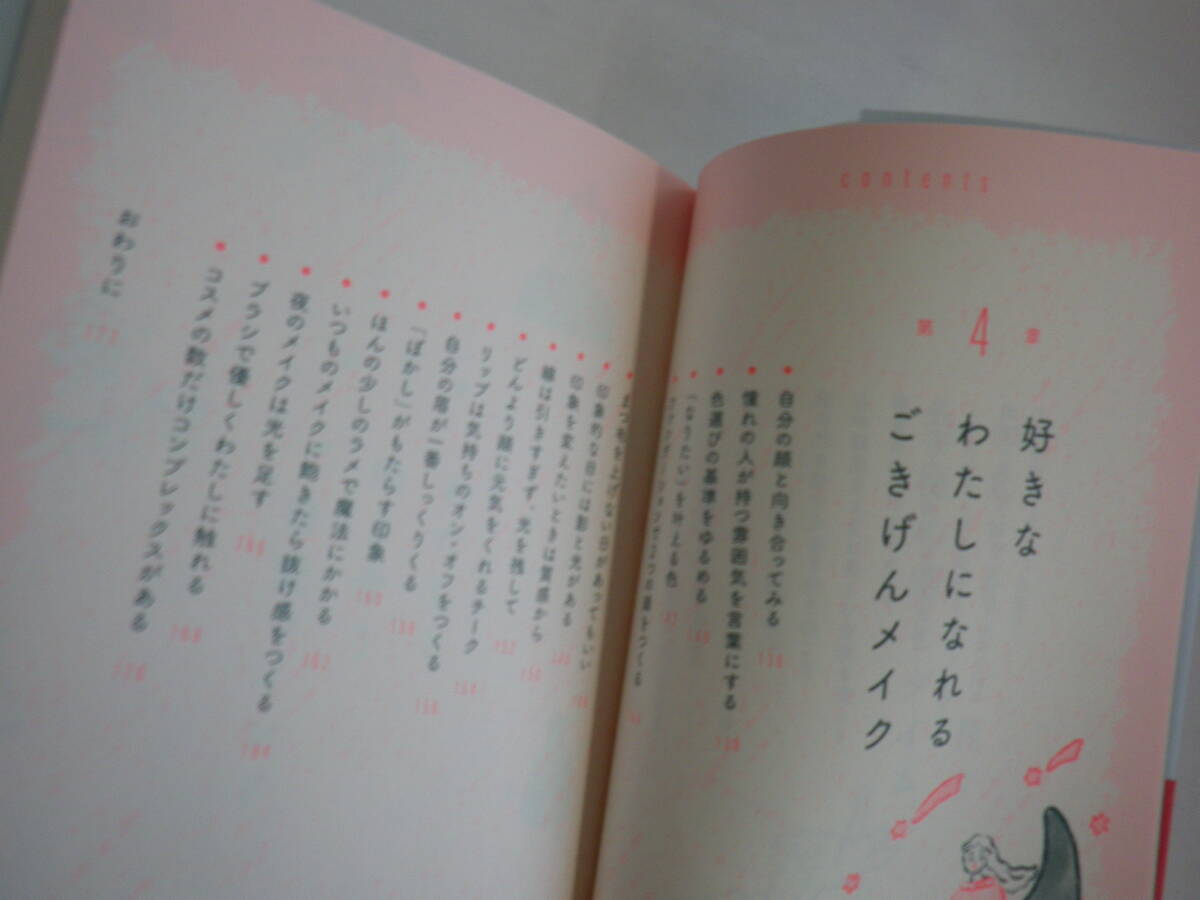 contents
第4章
好きな
わたしになれる
ごきげんメイク
自分の顔と向き合ってみる
憧れの人が持つ雰囲気を言葉にする 138
色選びの基準をゆるめる 140
「なりたい」を叶える色
つの顔をつくる
まつ毛を上げない日があってもいい
印象的な目には影と光がある
印象を変えたいときは質感から
線は引きすぎず、光を残して
どんよう顔に元気をくれるチーク
リップは気持ちのオン・オフをつくる
自分の眉が一番しっくりくる
「ぼかし」がもたらす印象
ほんの少しのラメで魔法にかかる 160
いつものメイクに飽きたら抜け感をつくる 162
夜のメイクは光を足す 164
ブラシで優しくわたしに触れる 166
コスメの数だけコンプレックスがある 168
おわりに